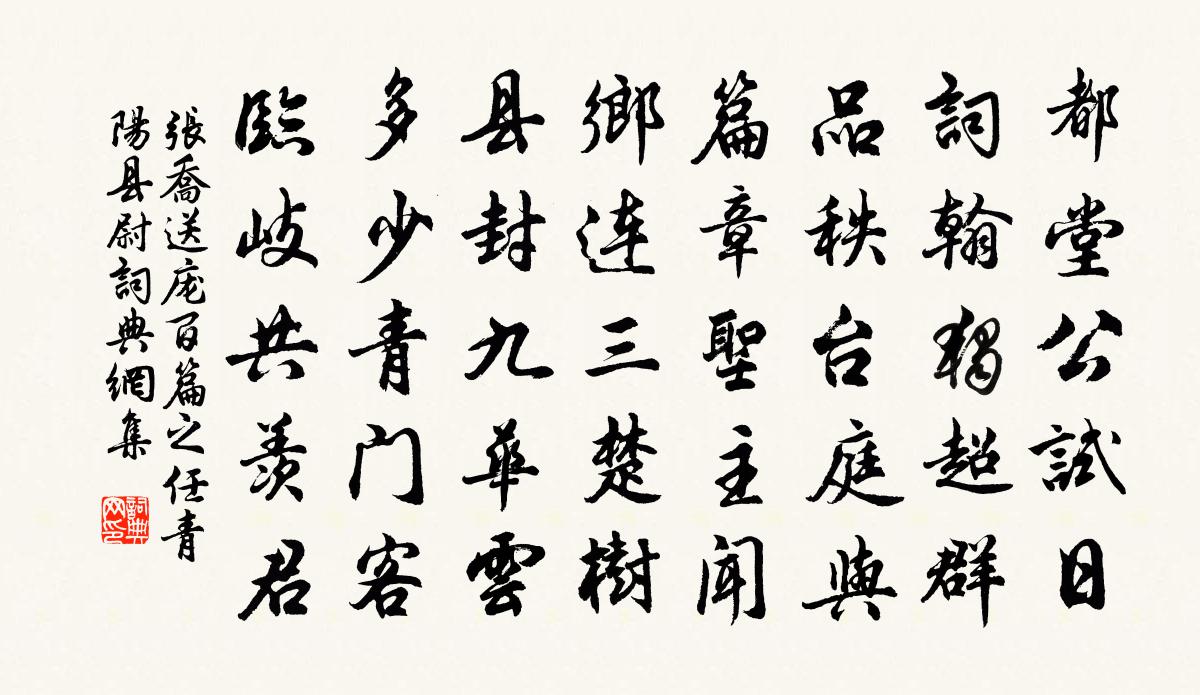 都堂公試日
詞翰獨超群
品秩台庭與
篇章聖主聞
鄉连三楚樹
县封九華雲
多少青门客
臨岐共羨君
張喬送庞百篇之任青
陽县尉詞典網集
詞典网印